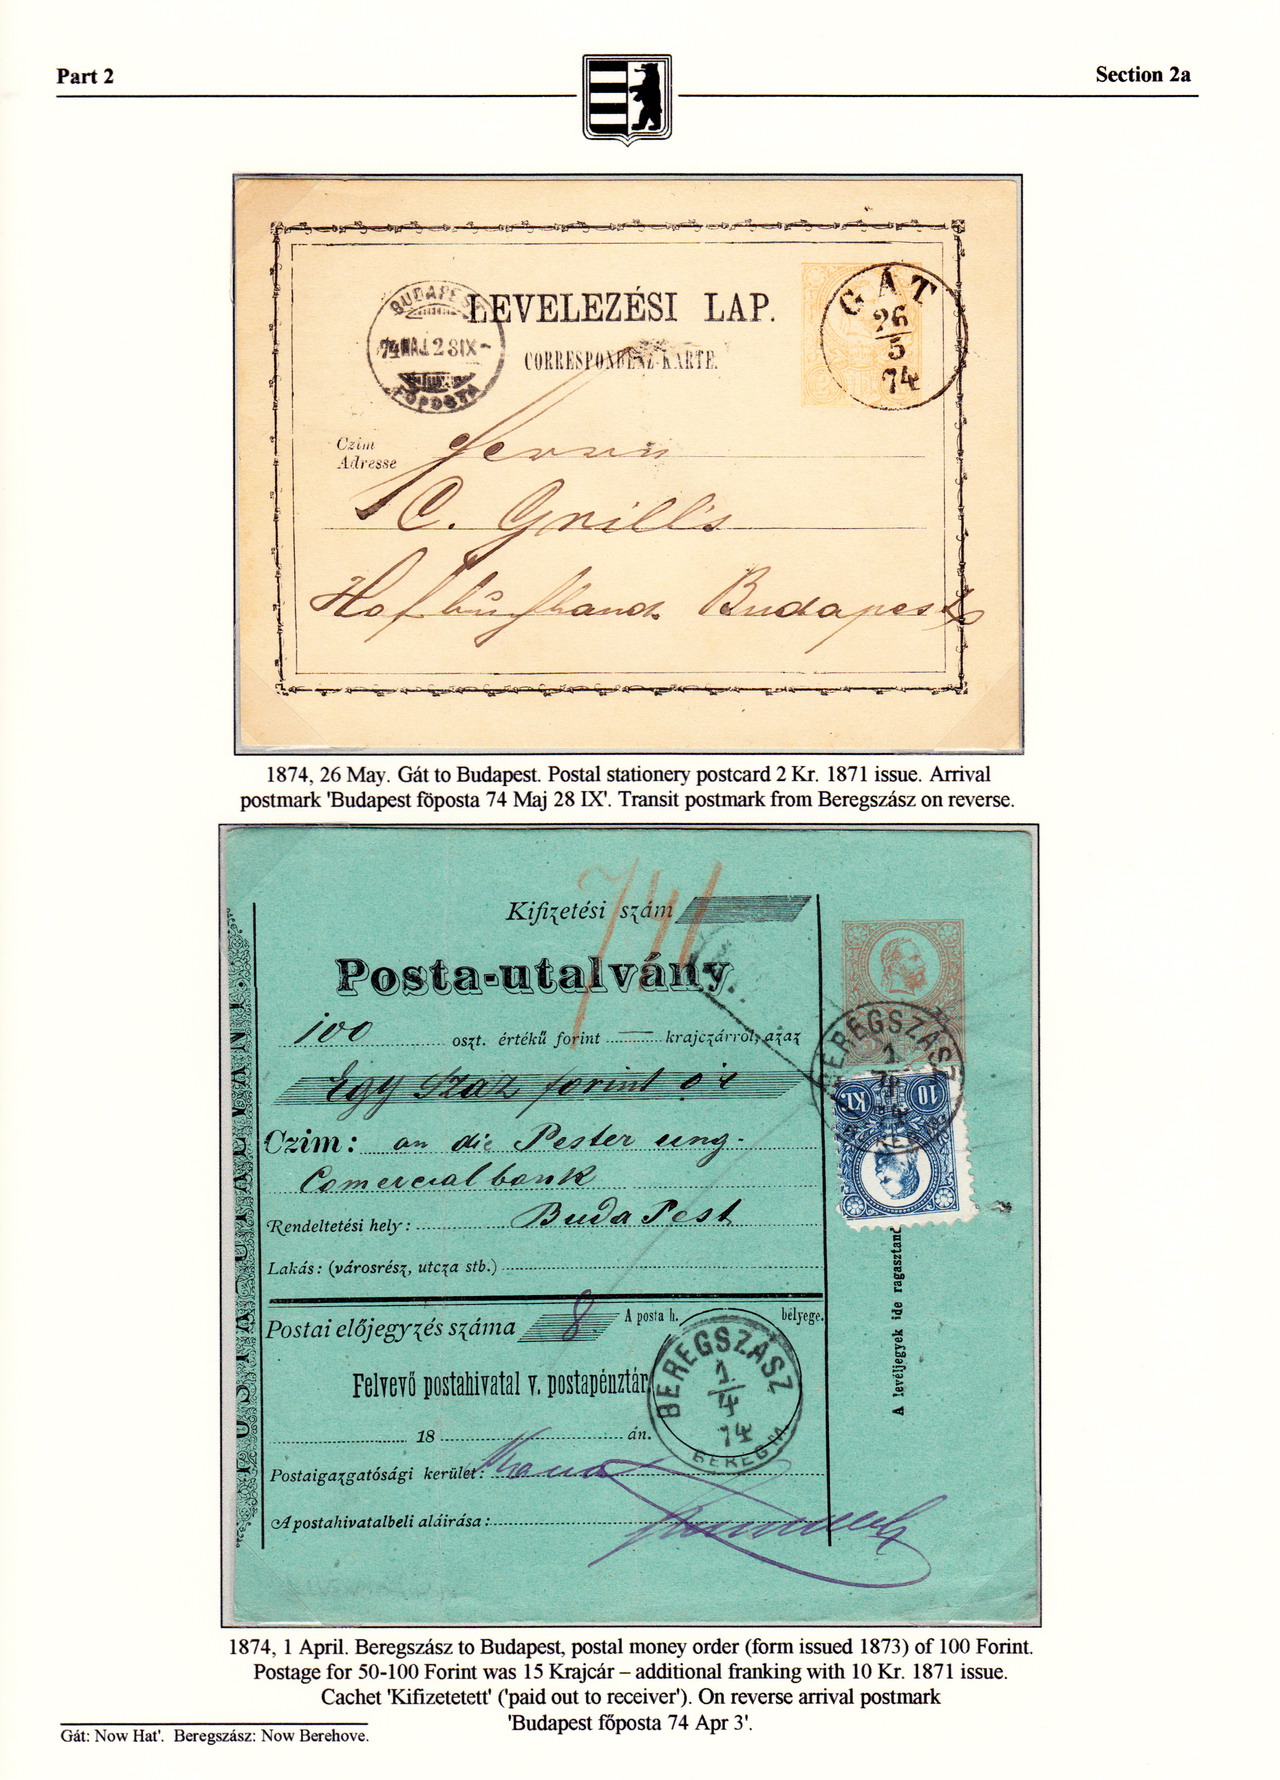 Part 2
Section 2a
LEVELEZÉSI LAP.
CORRESPONDENZ-KARTE.
BUDAPEST
74 MAJ 28 IX-
FÖPOSTA
GÁT
26
5
74
Czim
Adresse
Herrn
C. Grill's
Budapest
1874, 26 May. Gát to Budapest. Postal stationery postcard 2 Kr. 1871 issue. Arrival
postmark 'Budapest föposta 74 Maj 28 IX'. Transit postmark from Beregszász on reverse.
741
Kifizetési szám
Posta-utalvány
100 oszt. értékű forint krajczárról, azaz
Egy száz forint
Czim: an die Pester ung.
Comercialbank
Rendeltetési hely: BudaPest
Lakás: (városrész, utcza stb.)
Postai előjegyzés száma 8
A posta h. bélyege.
Felvevő postahivatal v. postapénztár
18 án.
Postaigazgatósági kerület:
A postahivatalbeli aláírása:
BEREGSZÁSZ
1
4
74
BEREG M.
BEREGSZÁSZ
10 Kr.
A levéljegyek ide ragasztand
POSTAUTALVÁNY.
1874, 1 April. Beregszász to Budapest, postal money order (form issued 1873) of 100 Forint.
Postage for 50-100 Forint was 15 Krajcár – additional franking with 10 Kr. 1871 issue.
Cachet 'Kifizetetett' ('paid out to receiver'). On reverse arrival postmark
'Budapest főposta 74 Apr 3'.
Gát: Now Hat'. Beregszász: Now Berehove.